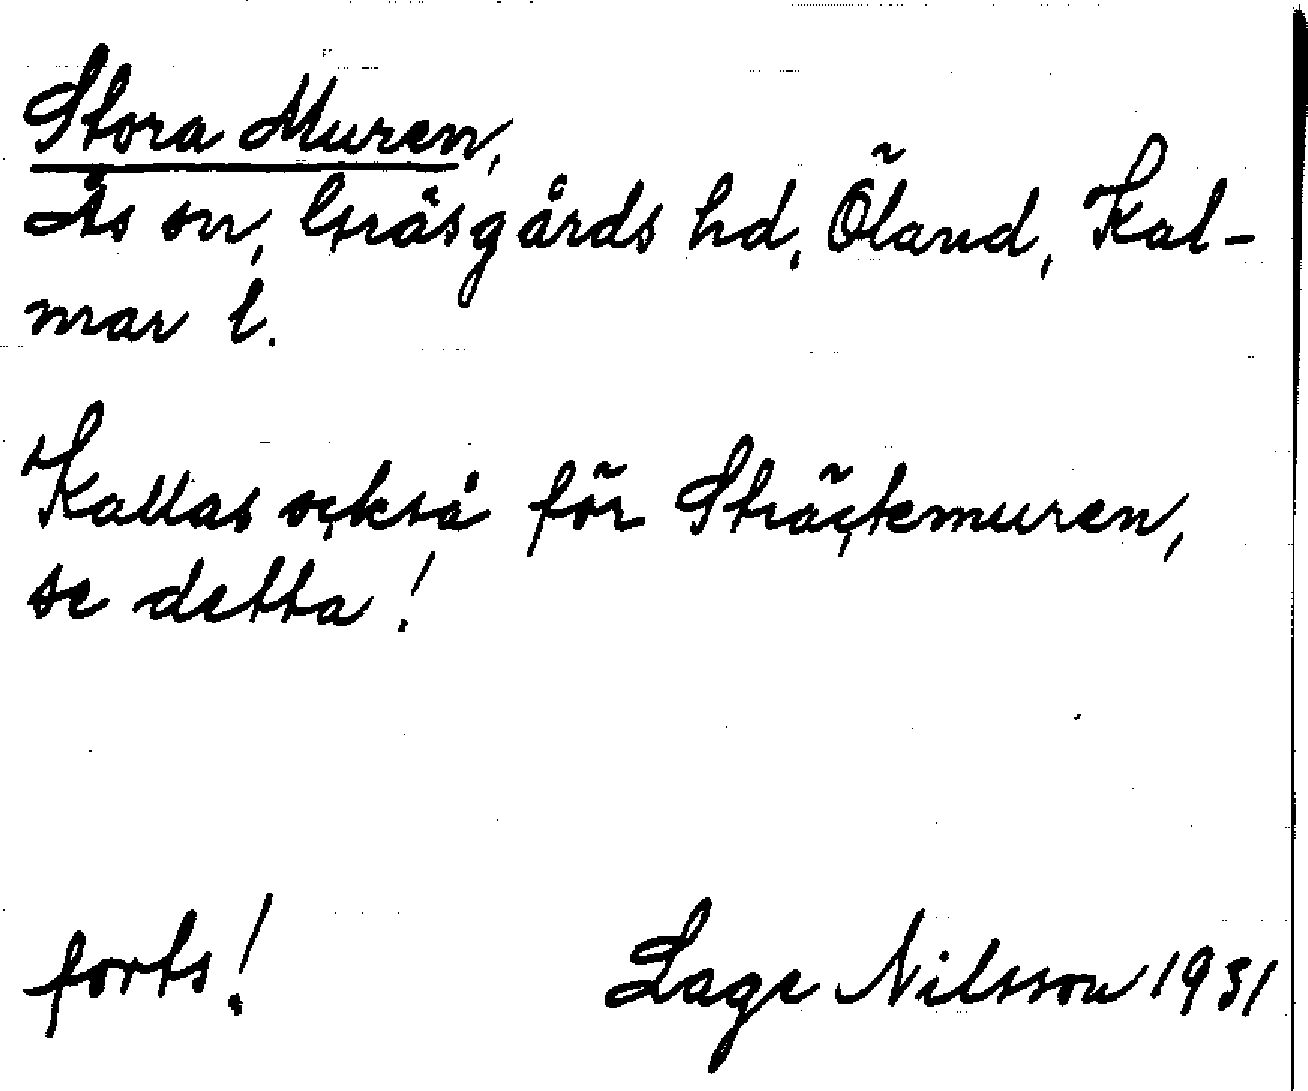 Stora Muren,
Ås sn, Gräsgårds hd, Öland, Kal-
mar l.
Kallas också för Sträctemuren,
se detta!
forts! Lage Nilsson 1931